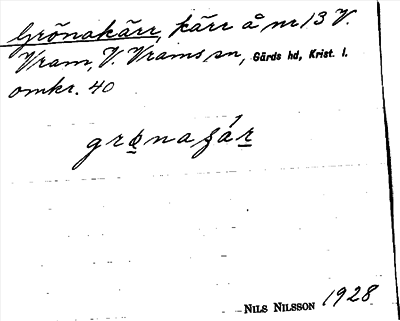 Grönakärr, kärr å nr 13 V.
Vram, V. Vrams sn, Gärds hd, Krist. l.
omkr. 40
NILS NILSSON 1928